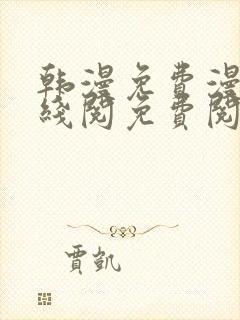 韩漫免费漫
线阅免费阅
贾凯